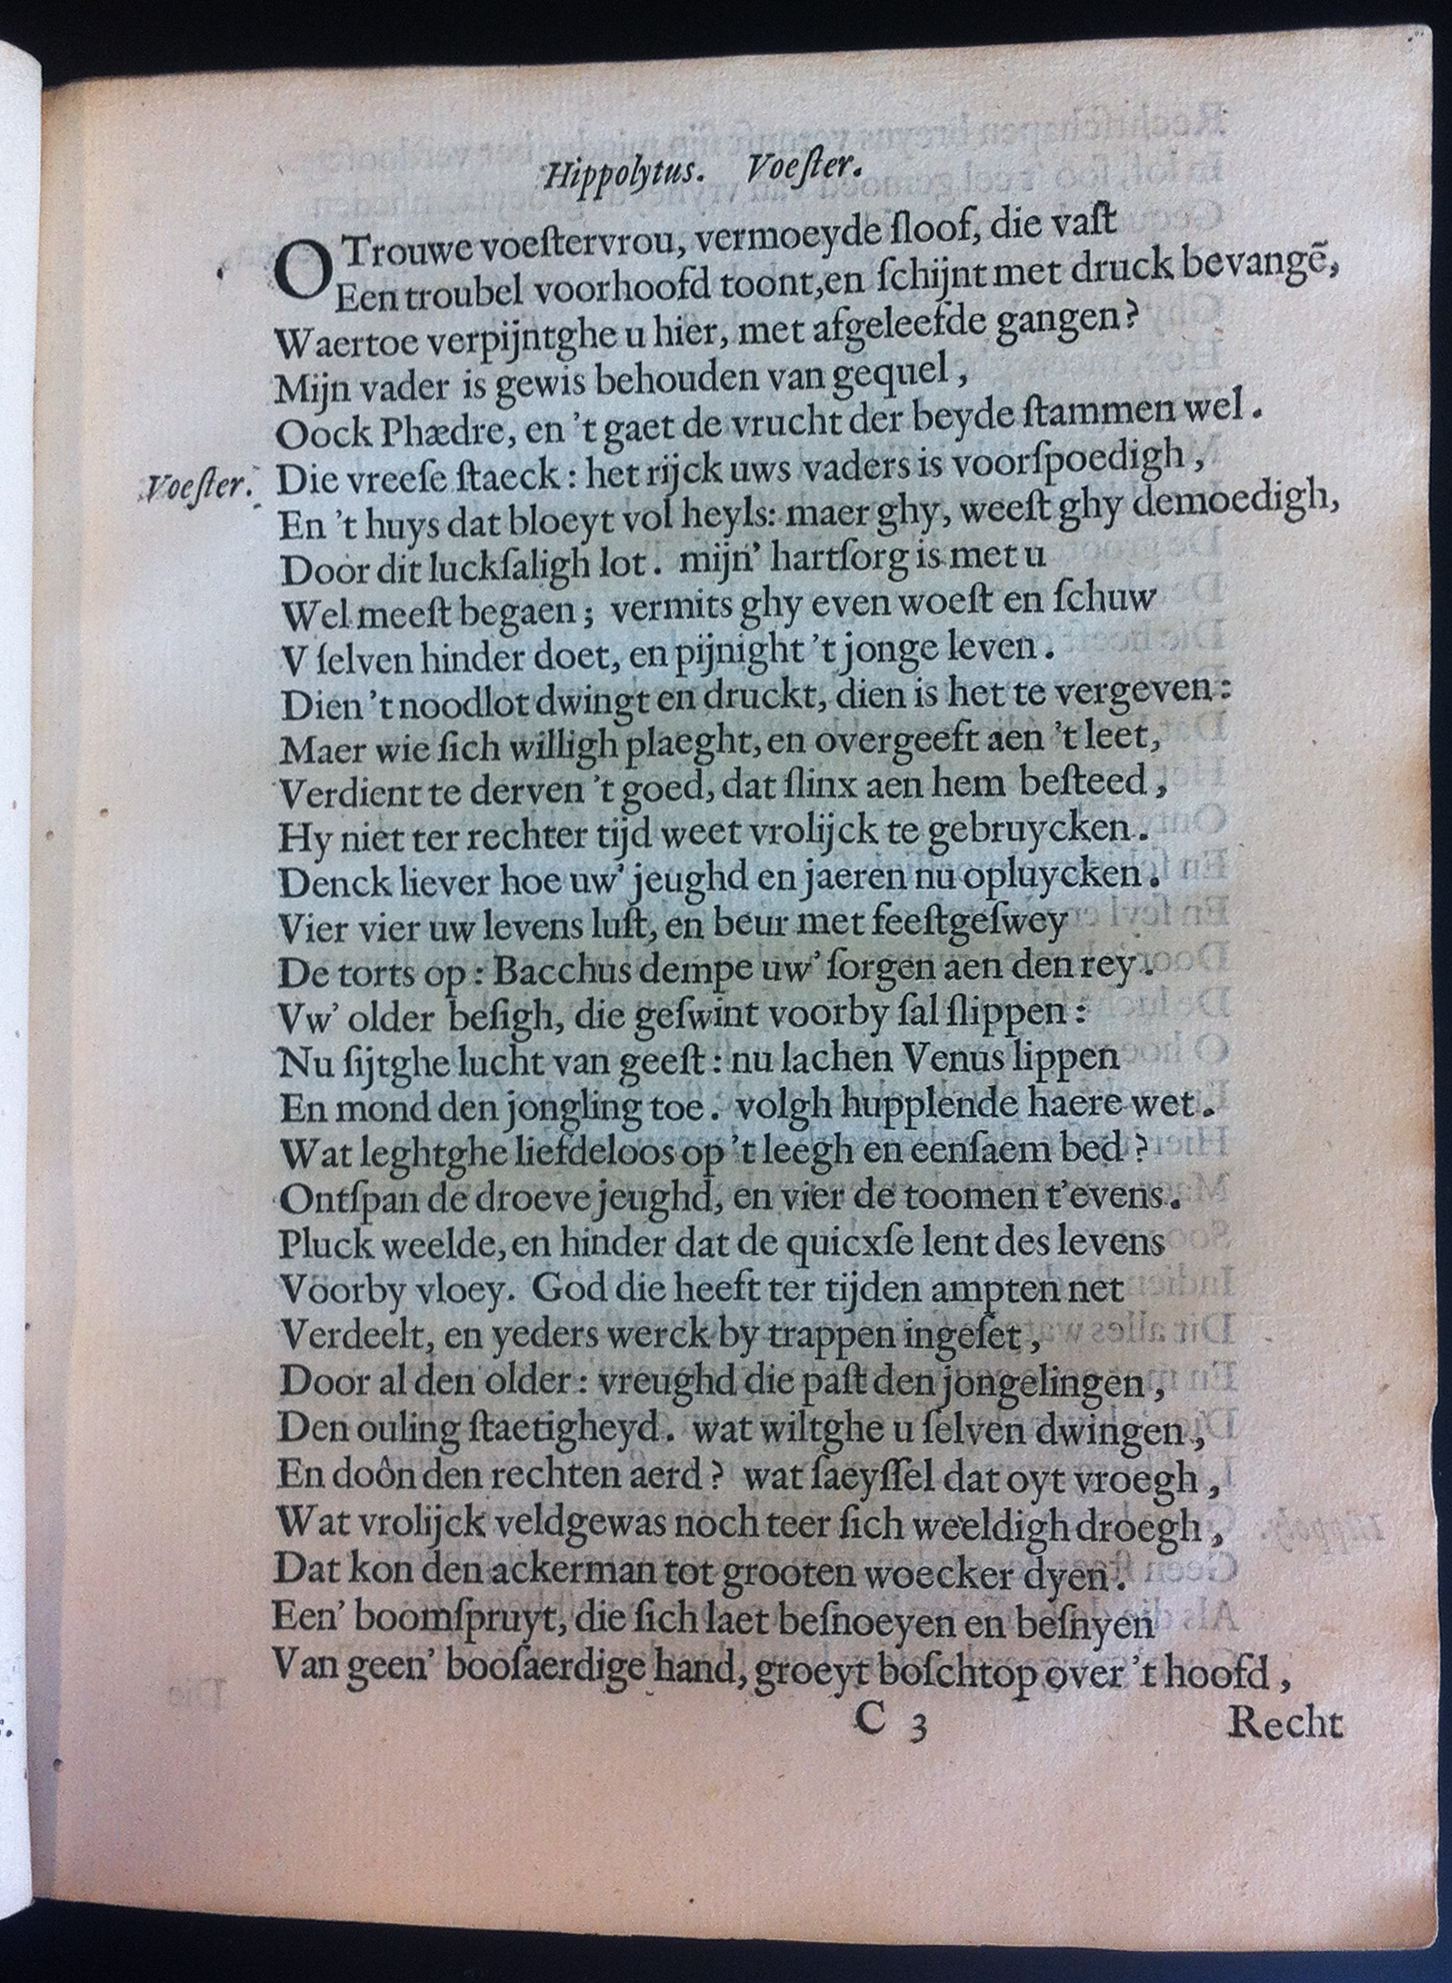 Hippolytus. Voeſter.
O Trouwe voeſtervrou, vermoeyde ſloof, die vaſt
Een troubel voorhoofd toont, en ſchijnt met druck bevangẽ,
Waertoe verpijntghe u hier, met afgeleefde gangen?
Mijn vader is gewis behouden van gequel,
Oock Phædre, en 't gaet de vrucht der beyde ſtammen wel.
Voeſter. Die vreeſe ſtaeck: het rijck uws vaders is voorſpoedigh,
En 't huys dat bloeyt vol heyls: maer ghy, weeſt ghy demoedigh,
Door dit luckſaligh lot. mijn' hartſorg is met u
Wel meeſt begaen; vermits ghy even woeſt en ſchuw
V ſelven hinder doet, en pijnight 't jonge leven.
Dien 't noodlot dwingt en druckt, dien is het te vergeven:
Maer wie ſich willigh plaeght, en overgeeft aen 't leet,
Verdient te derven 't goed, dat ſlinx aen hem beſteed,
Hy niet ter rechter tijd weet vrolijck te gebruycken.
Denck liever hoe uw' jeughd en jaeren nu opluycken.
Vier vier uw levens luſt, en beur met feeſtgeſwey
De torts op: Bacchus dempe uw' ſorgen aen den rey.
Vw' older beſigh, die geſwint voorby ſal ſlippen:
Nu ſijtghe lucht van geeſt: nu lachen Venus lippen
En mond den jongling toe. volgh hupplende haere wet.
Wat leghtghe liefdeloos op 't leegh en eenſaem bed?
Ontſpan de droeve jeughd, en vier de toomen t'evens.
Pluck weelde, en hinder dat de quicxſe lent des levens
Voorby vloey. God die heeft ter tijden ampten net
Verdeelt, en yeders werck by trappen ingeſet,
Door al den older: vreughd die paſt den jongelingen,
Den ouling ſtaetigheyd. wat wiltghe u ſelven dwingen,
En doôn den rechten aerd? wat ſaeyſſel dat oyt vroegh,
Wat vrolijck veldgewas noch teer ſich weeldigh droegh,
Dat kon den ackerman tot grooten woecker dyen.
Een' boomſpruyt, die ſich laet beſnoeyen en beſnyen
Van geen' booſaerdige hand, groeyt boſchtop over 't hoofd,
C 3 Recht